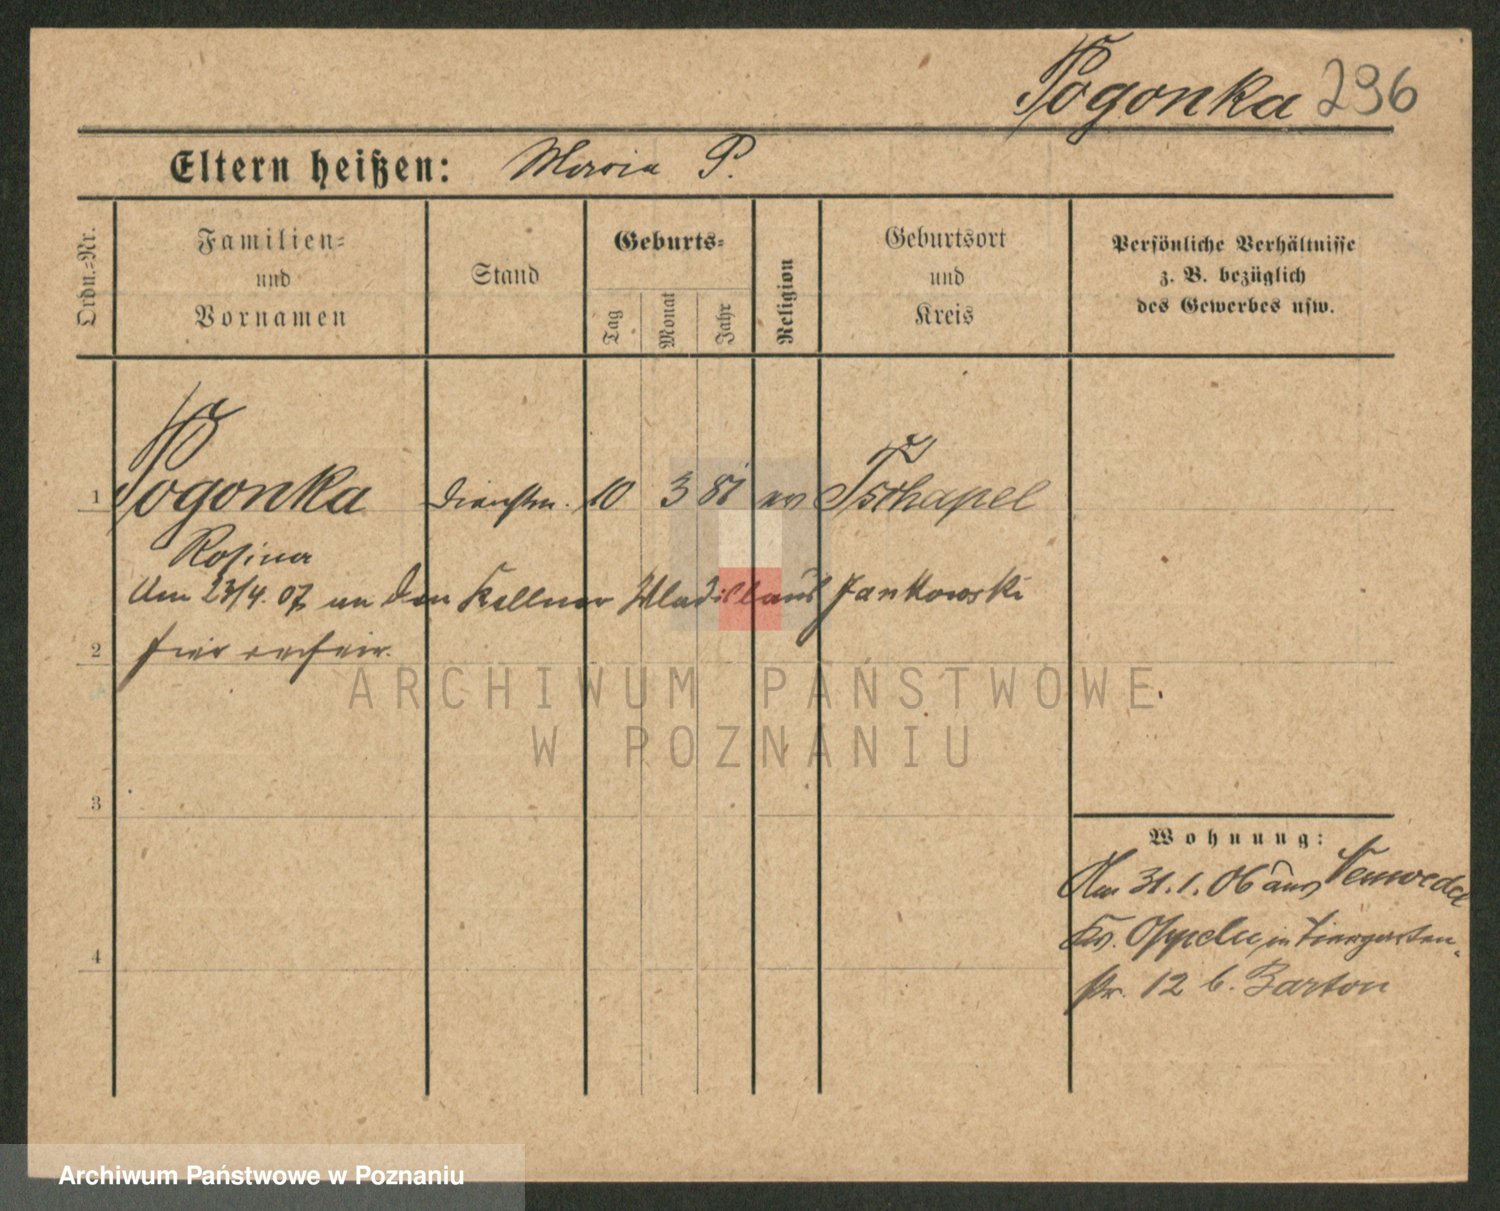 Pogonka 296
Eltern heißen: Maria P.
Ordn.=Nr.
Familien=
und
Vornamen
Stand
Geburts=
Tag
Monat
Jahr
Religion
Geburtsort
und
Kreis
Persönliche Verhältnisse
z. B. bezüglich
des Gewerbes usw.
1 Pogonka Dienstm. 10 3 81 ev Tschapel
Rosina
Am 23/4. 07 an den Kellner Wladislaus Jankowski
2 hier verheir.
3
4
Wohnung:
Am 31.1.06 aus
Kr. Oppeln, in Tiergarten-
str. 12 b. Barton
ARCHIWUM PAŃSTWOWE
W POZNANIU
Archiwum Państwowe w Poznaniu